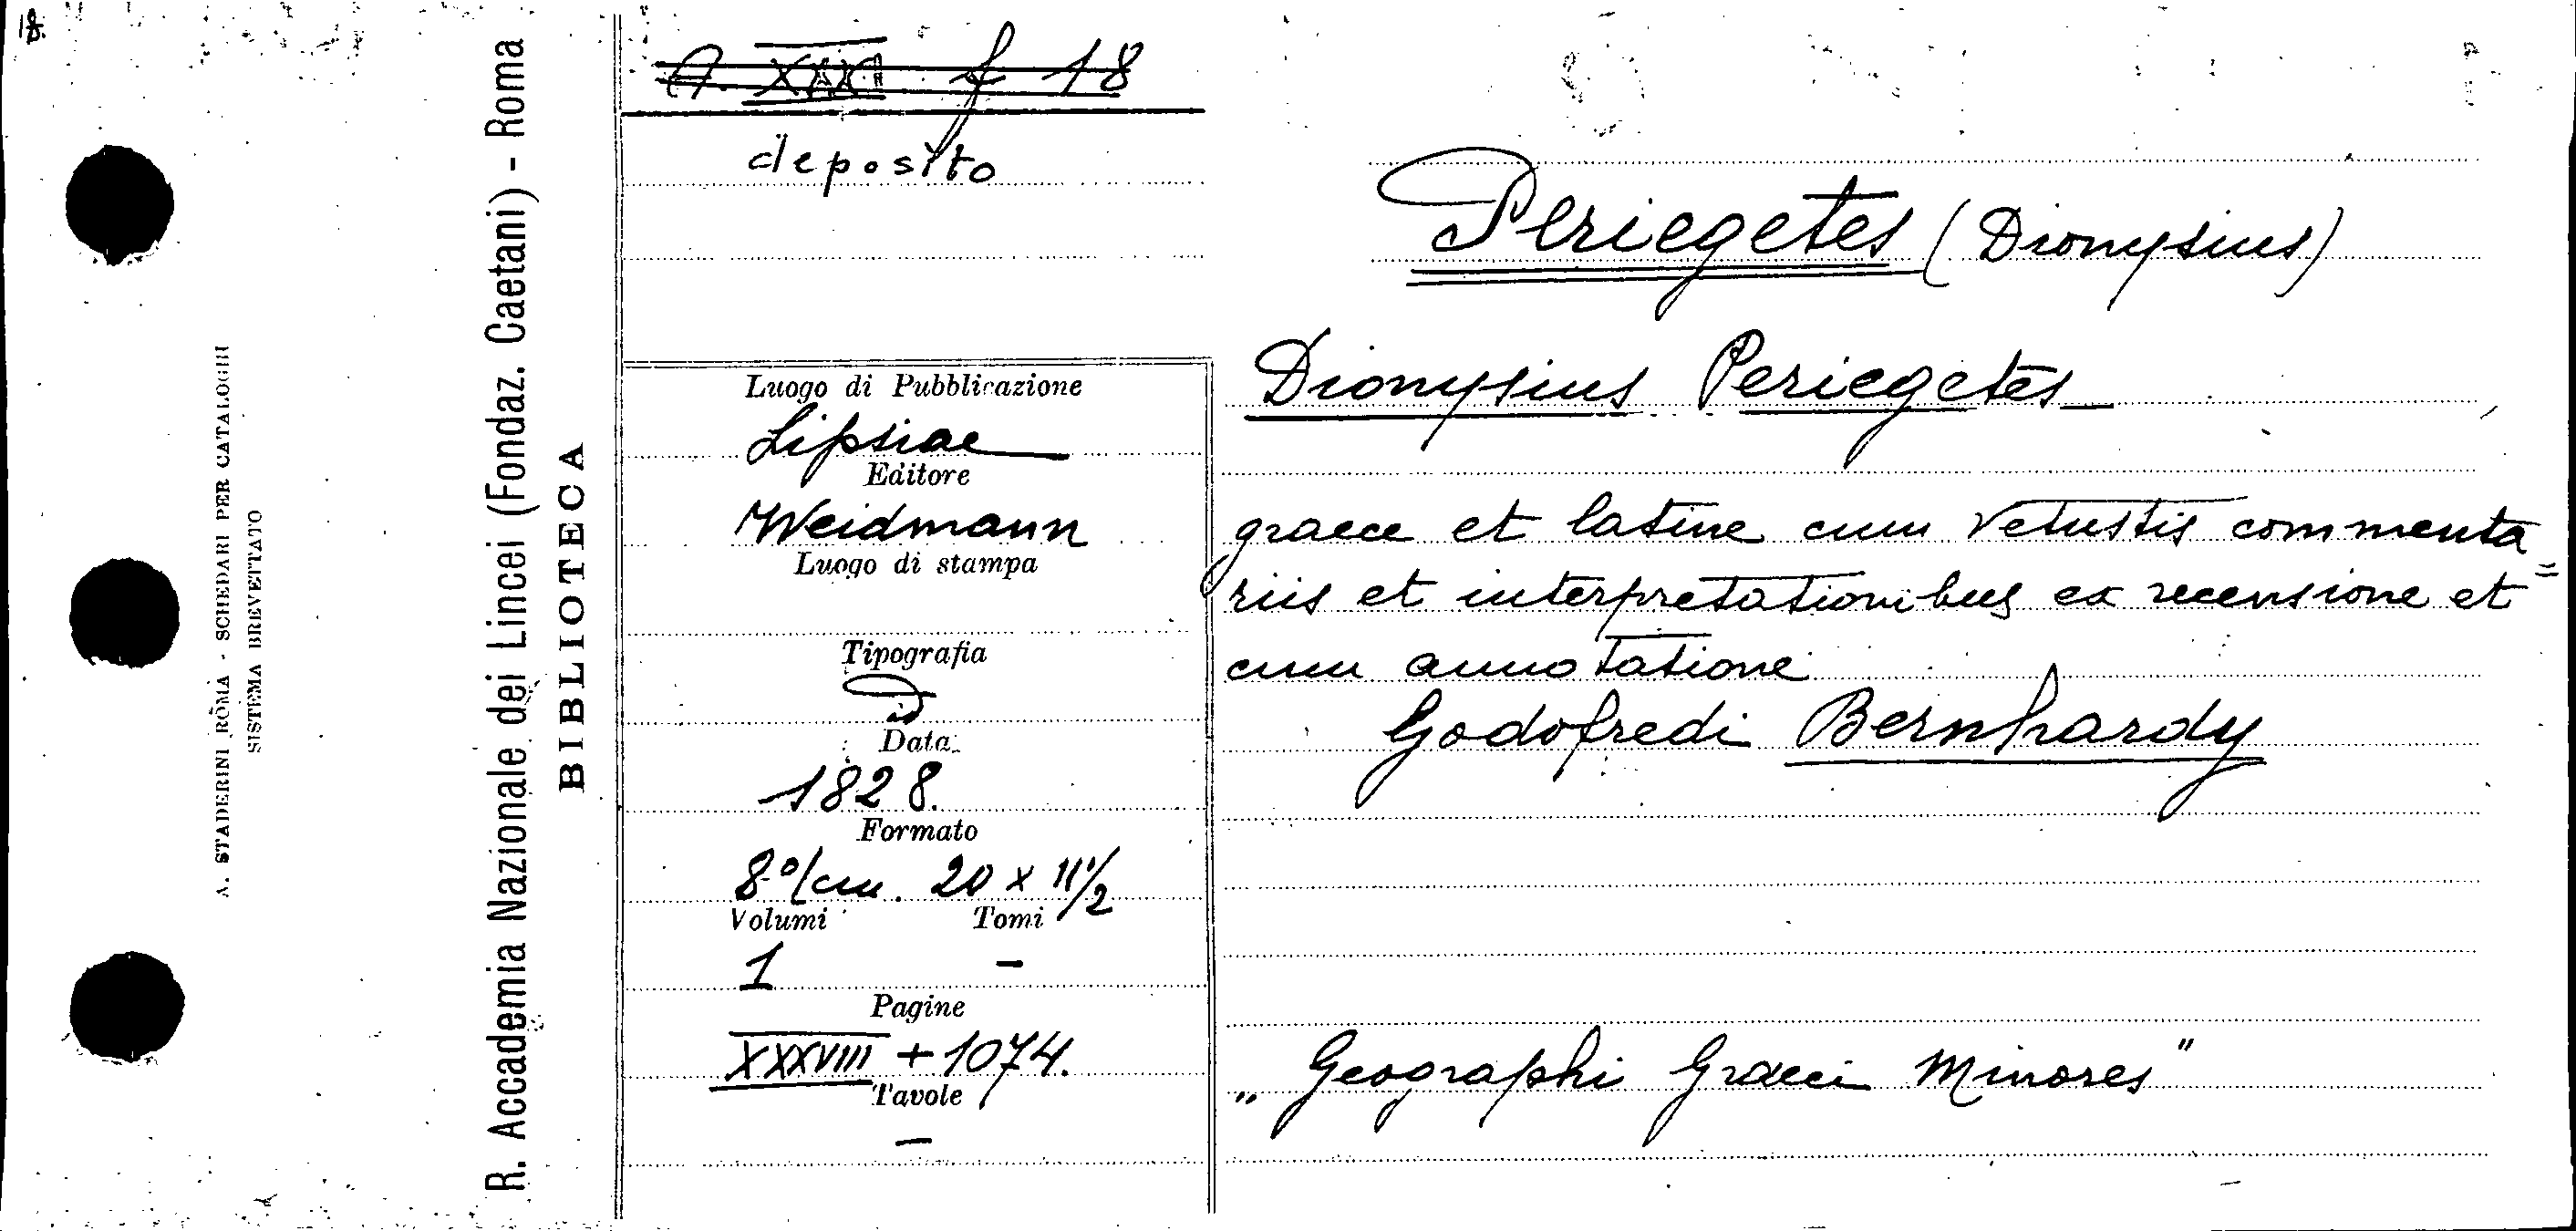 18.
A. STADERINI ROMA - SCHEDARI PER CATALOGHI
SISTEMA BREVETTATO
R. Accademia Nazionale dei Lincei (Fondaz. Caetani) - Roma
BIBLIOTECA
f 18
deposito
Luogo di Pubblicazione
Lipsiae
Editore
Weidmann
Luogo di stampa
Tipografia
id
Data
1828.
Formato
8º/cm. 20 x 11 1/2
Volumi Tomi
1 -
Pagine
XXXVIII + 1074.
Tavole
-
Periegetes (Dionysius)
Dionysius Periegetes
graece et latine cum vetustis commenta=
riis et interpretationibus ex recensione et
cum annotatione
Godofredi Bernhardy
„Geographi Graeci Minores"